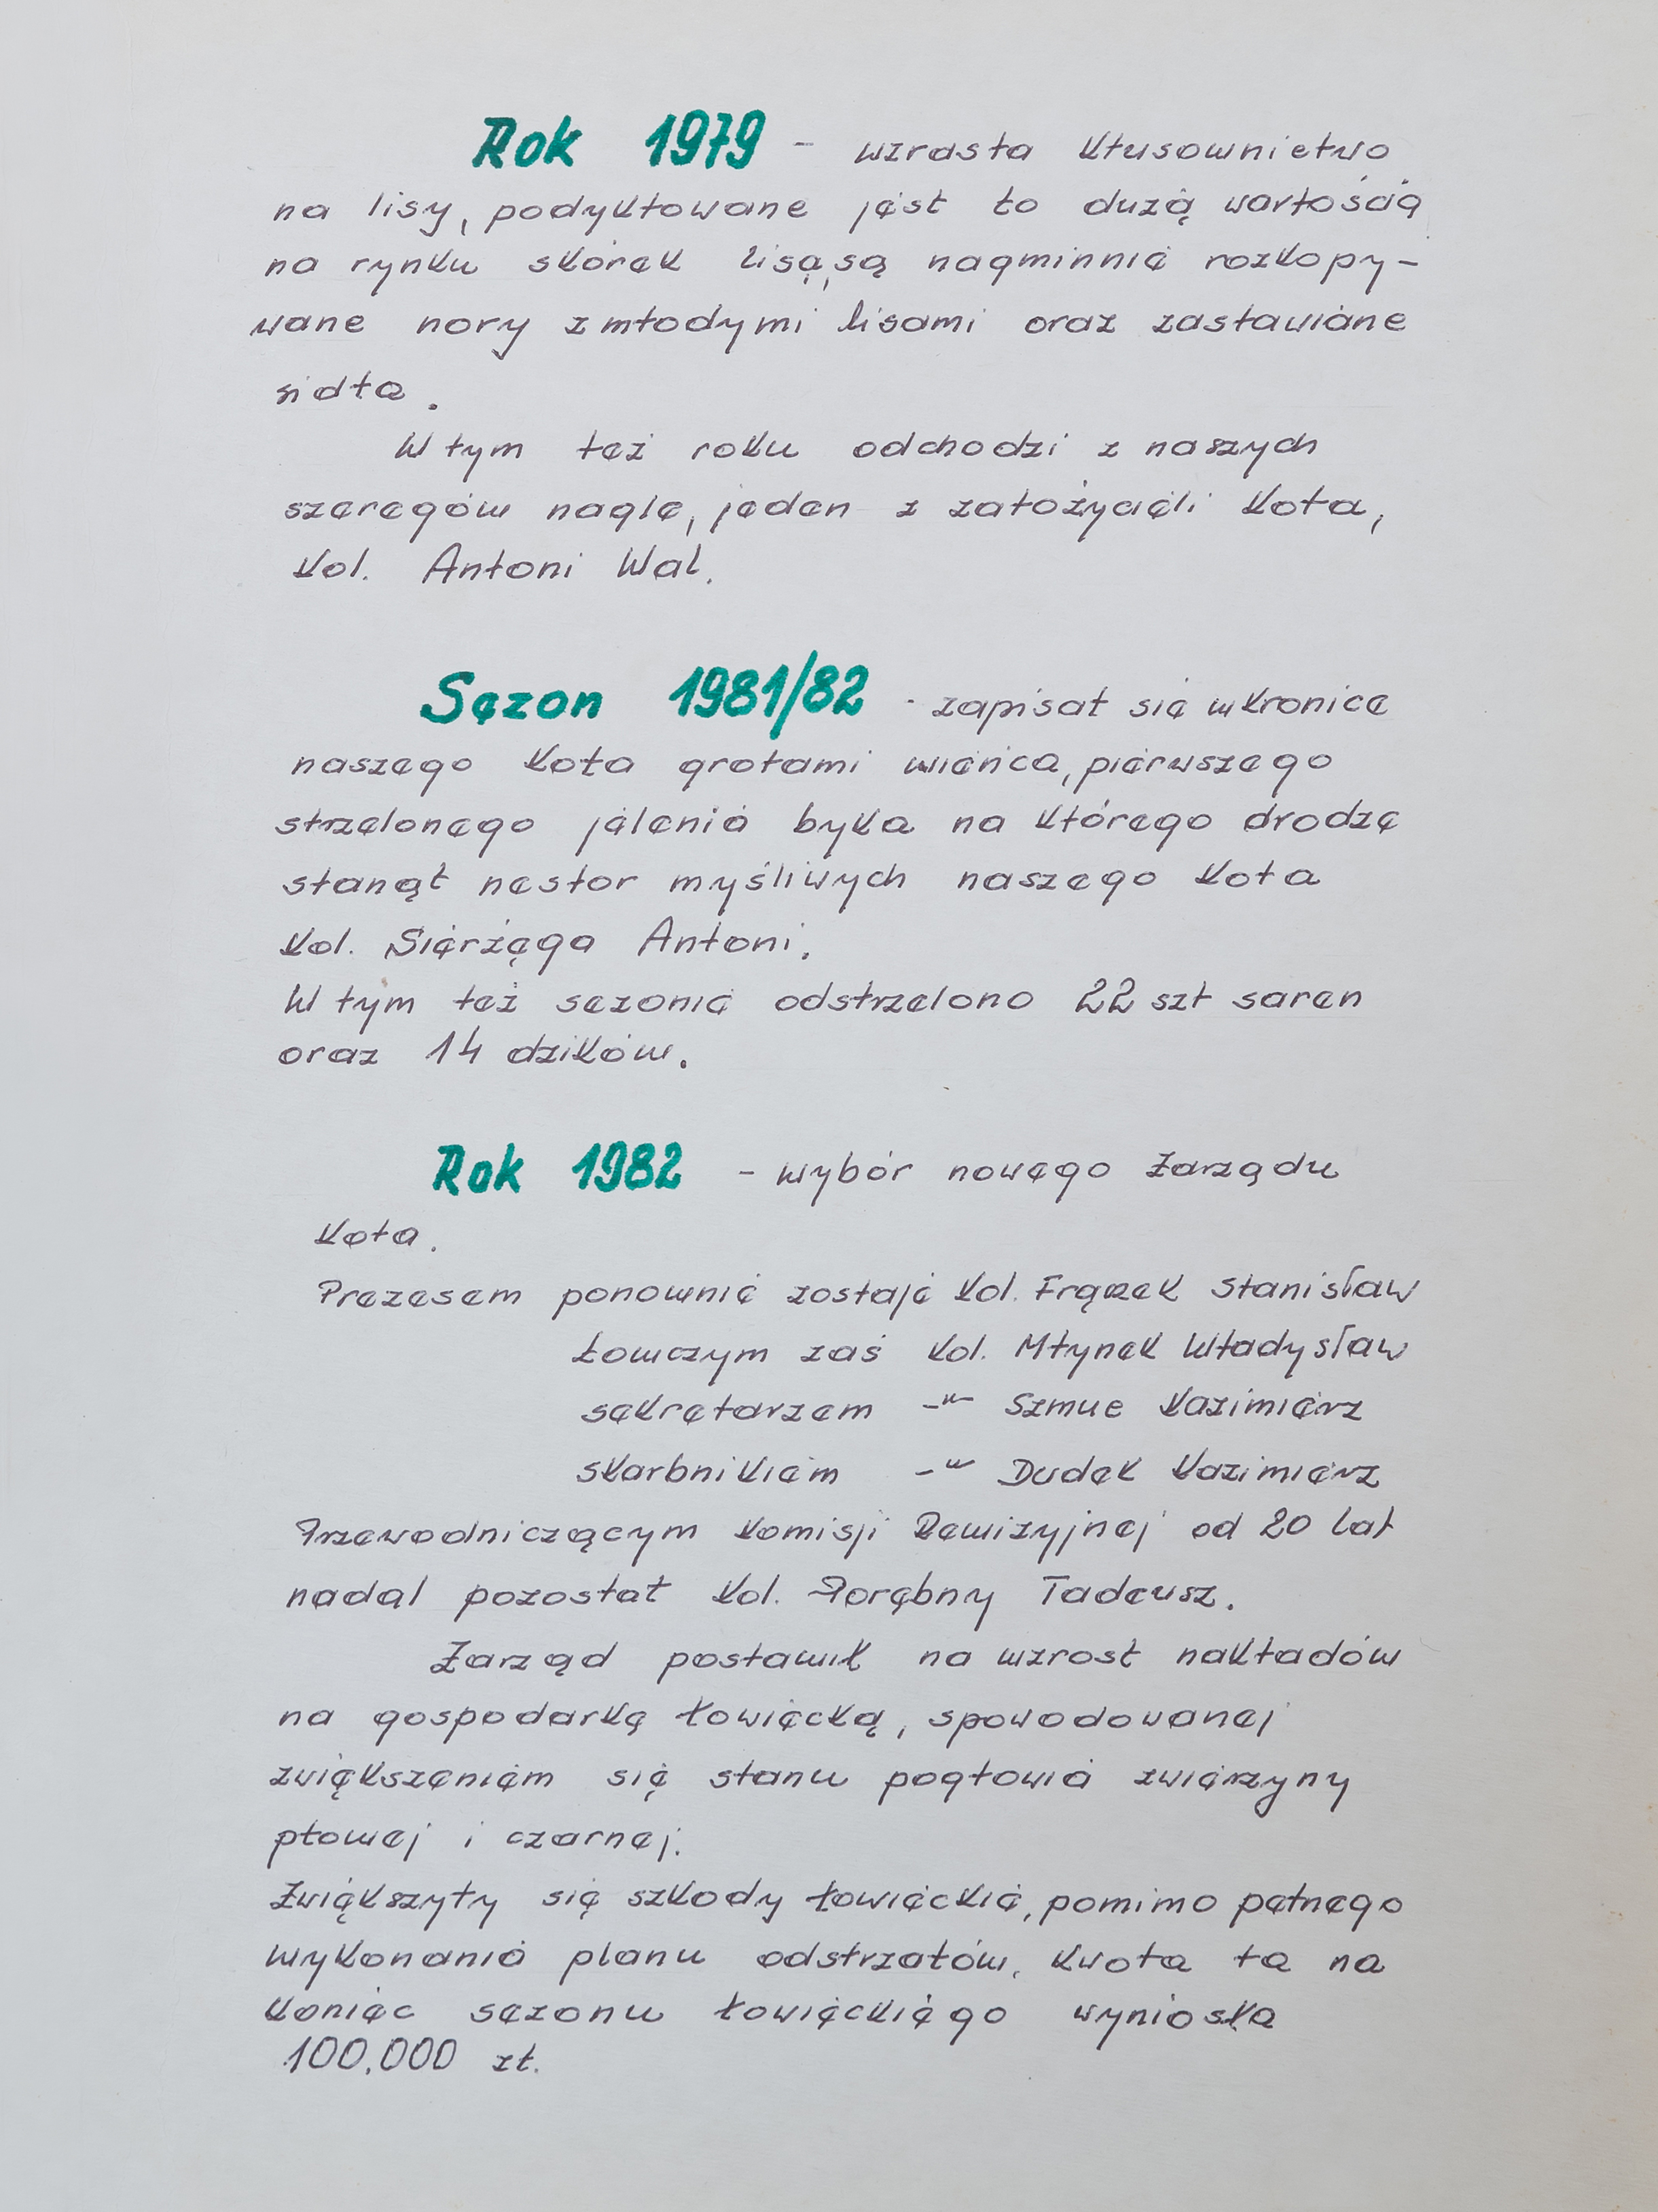 Rok 1979 - wzrasta kłusownictwo
na lisy, podyktowane jest to dużą wartością
na rynku skórek lisa, są nagminnie rozkopy-
wane nory z młodymi lisami oraz zastawiane
sidła.
W tym też roku odchodzi z naszych
szeregów nagle, jeden z założycieli Koła,
Kol. Antoni Wal.
Sezon 1981/82 - zapisał się w kronice
naszego Koła grotami wieńca, pierwszego
strzelonego jelenia byka na którego drodze
stanął nestor myśliwych naszego Koła
Kol. Sierżęga Antoni.
W tym też sezonie odstrzelono 22 szt saren
oraz 14 dzików.
Rok 1982 - wybór nowego Zarządu
Koła.
Prezesem ponownie zostaje Kol. Frączek Stanisław
Łowczym zaś Kol. Młynek Władysław
sekretarzem -"- Szmuc Kazimierz
skarbnikiem -"- Dudek Kazimierz
Przewodniczącym Komisji Rewizyjnej od 20 lat
nadal pozostał Kol. Porębny Tadeusz.
Zarząd postawił na wzrost nakładów
na gospodarkę łowiecką, spowodowanej
zwiększeniem się stanu pogłowia zwierzyny
płowej i czarnej.
Zwiększyły się szkody łowieckie, pomimo pełnego
wykonania planu odstrzałów. Kwota ta na
koniec sezonu łowieckiego wyniosła
100.000 zł.